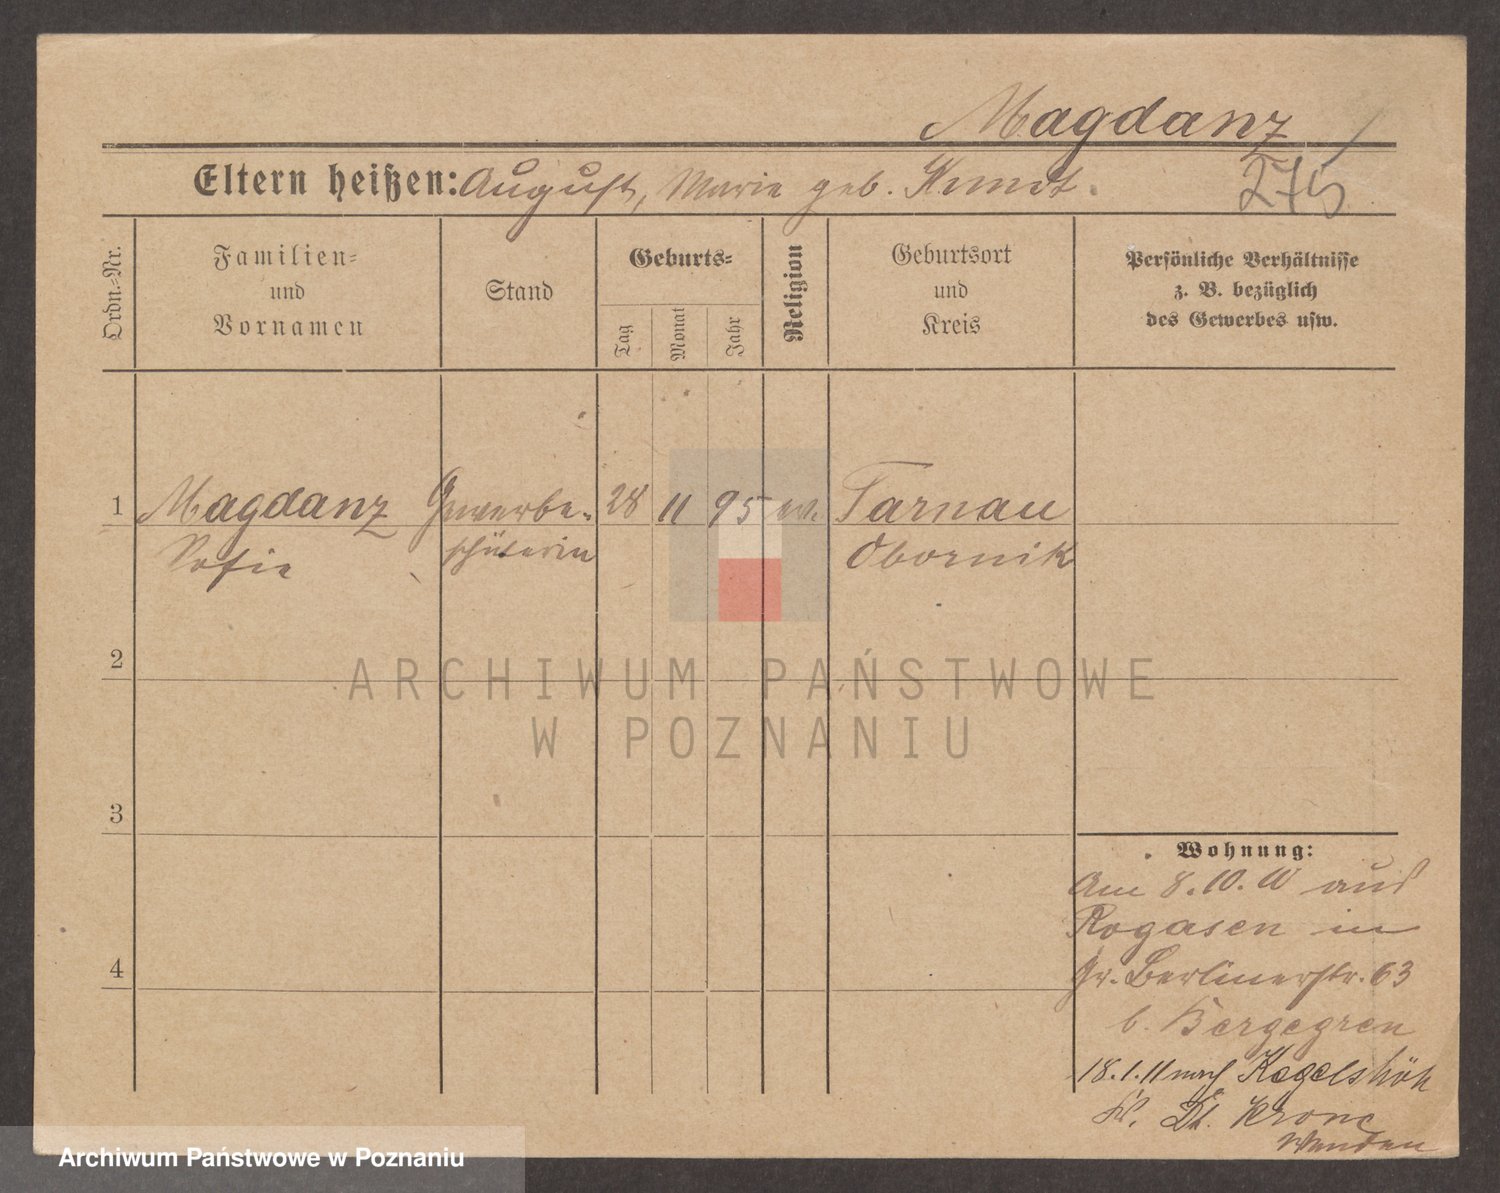 Magdanz
Eltern heißen: August, Marie geb.
275
Ordn.-Nr.
Familien-
und
Vornamen
Stand
Geburts-
Tag
Monat
Jahr
Religion
Geburtsort
und
Kreis
Persönliche Verhältnisse
z. B. bezüglich
des Gewerbes usw.
1 Magdanz Gewerbe- 28 11 95 ev. Tarnau
Sofie schülerin Obornik
2
ARCHIWUM PAŃSTWOWE
W POZNANIU
3
4
Wohnung:
Am 8.10.10 aus
Rogasen in
Gr. Berlinerstr. 63
b. Bergegren
18.1.11 nach Kegelshöh
Kr. Dt. Krone
Wenden
Archiwum Państwowe w Poznaniu